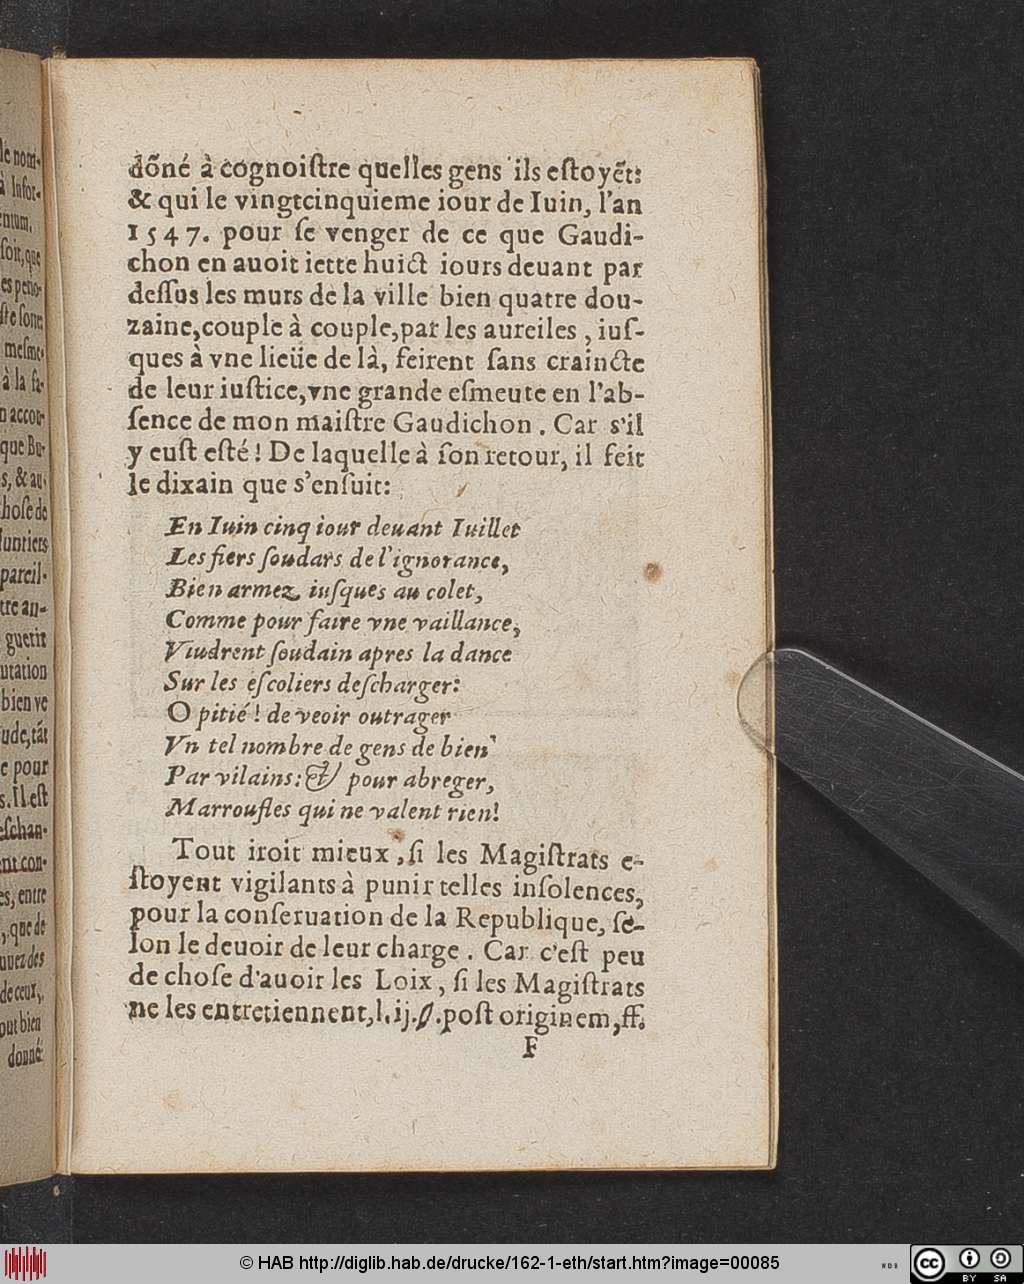 dõné à cognoiſtre quelles gens ils eſtoyẽt:
& qui le vingtcinquieme iour de Iuin, l'an
1547. pour ſe venger de ce que Gaudi-
chon en auoit iette huict iours deuant par
deſſus les murs de la ville bien quatre dou-
zaine, couple à couple, par les aureiles, iuſ-
ques à vne lieüe de là, feirent ſans craincte
de leur iuſtice, vne grande eſmeute en l'ab-
ſence de mon maiſtre Gaudichon. Car s'il
y euſt eſté! De laquelle à ſon retour, il feit
le dixain que s'enſuit:
En Iuin cinq iour deuant Iuillet
Les fiers ſoudars de l'ignorance,
Bien armez iuſques au colet,
Comme pour faire vne vaillance,
Viudrent ſoudain apres la dance
Sur les eſcoliers deſcharger:
O pitié! de veoir outrager
Vn tel nombre de gens de bien
Par vilains: & pour abreger,
Marroufles qui ne valent rien!
Tout iroit mieux, ſi les Magiſtrats e-
ſtoyent vigilants à punir telles inſolences,
pour la conſeruation de la Republique, ſe-
lon le deuoir de leur charge. Car c'eſt peu
de choſe d'auoir les Loix, ſi les Magiſtrats
ne les entretiennent, l. ij. §. poſt originem, ff.
F
le nom-
à Infor-
entum,
ſoit, que
meſme-
à la fa-
n accou-
que Bu-
s, & au-
choſe de
pareil-
tre au-
guerit
utation
bien ve
ude, tãt
e pour
s. Il eſt
eſchan-
ent con-
es, entre
, que de
uuez des
de ceux,
out bien
donné
© HAB http://diglib.hab.de/drucke/162-1-eth/start.htm?image=00085
cc BY SA